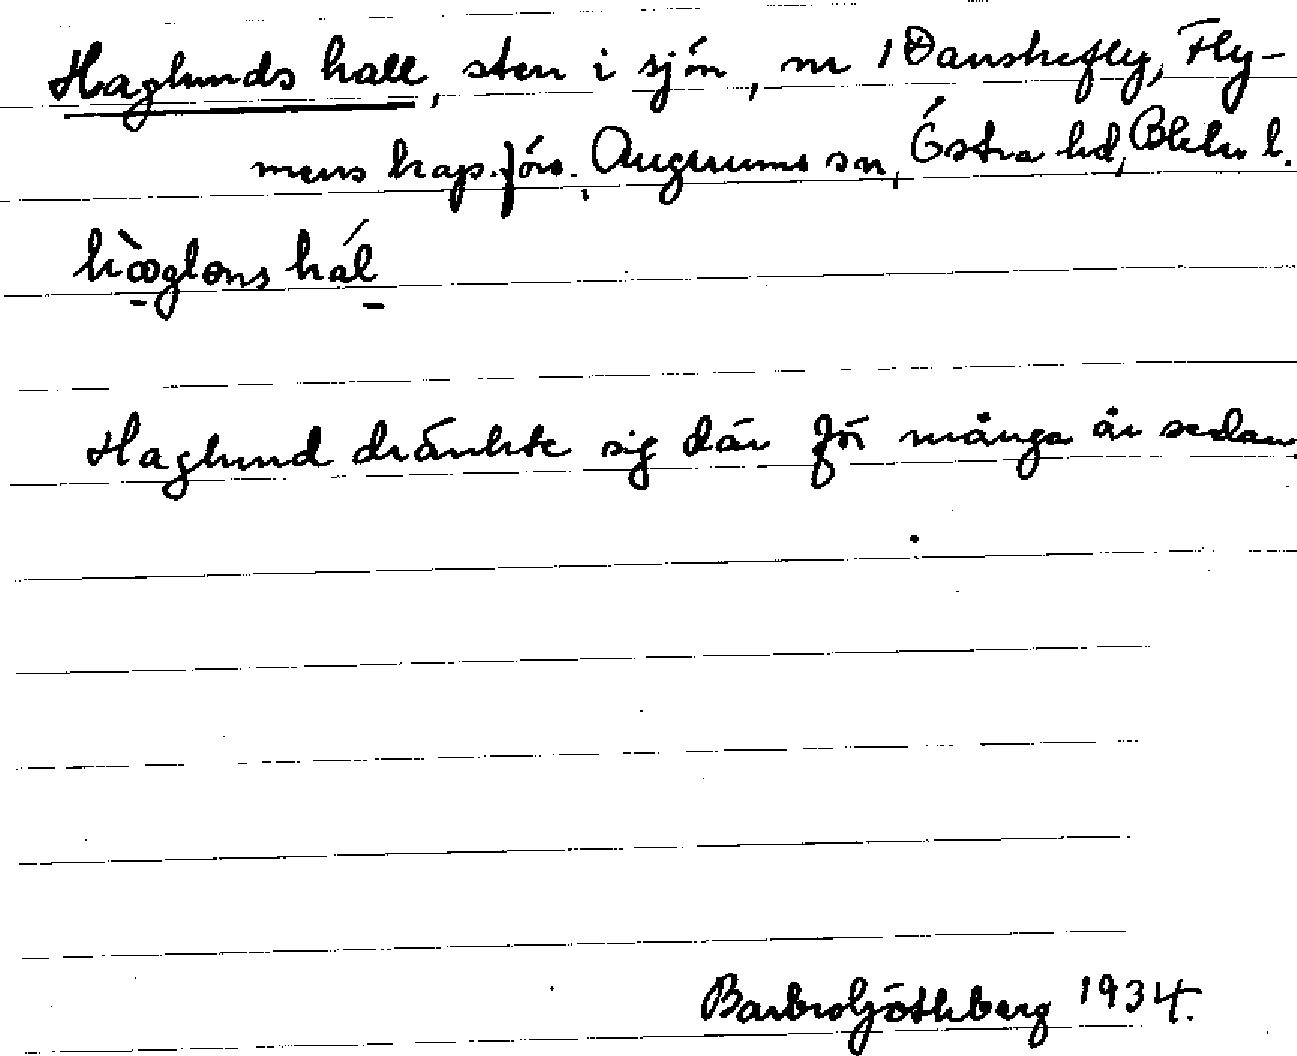 Haglunds hall, sten i sjön, nr 1 Danskefly, Fly-
mens kap.förs. Augerums sn, Östra hd, Blek. l.
hàglons hál
Haglund dränkte sig där för många år sedan
Barbro Götheberg 1934.